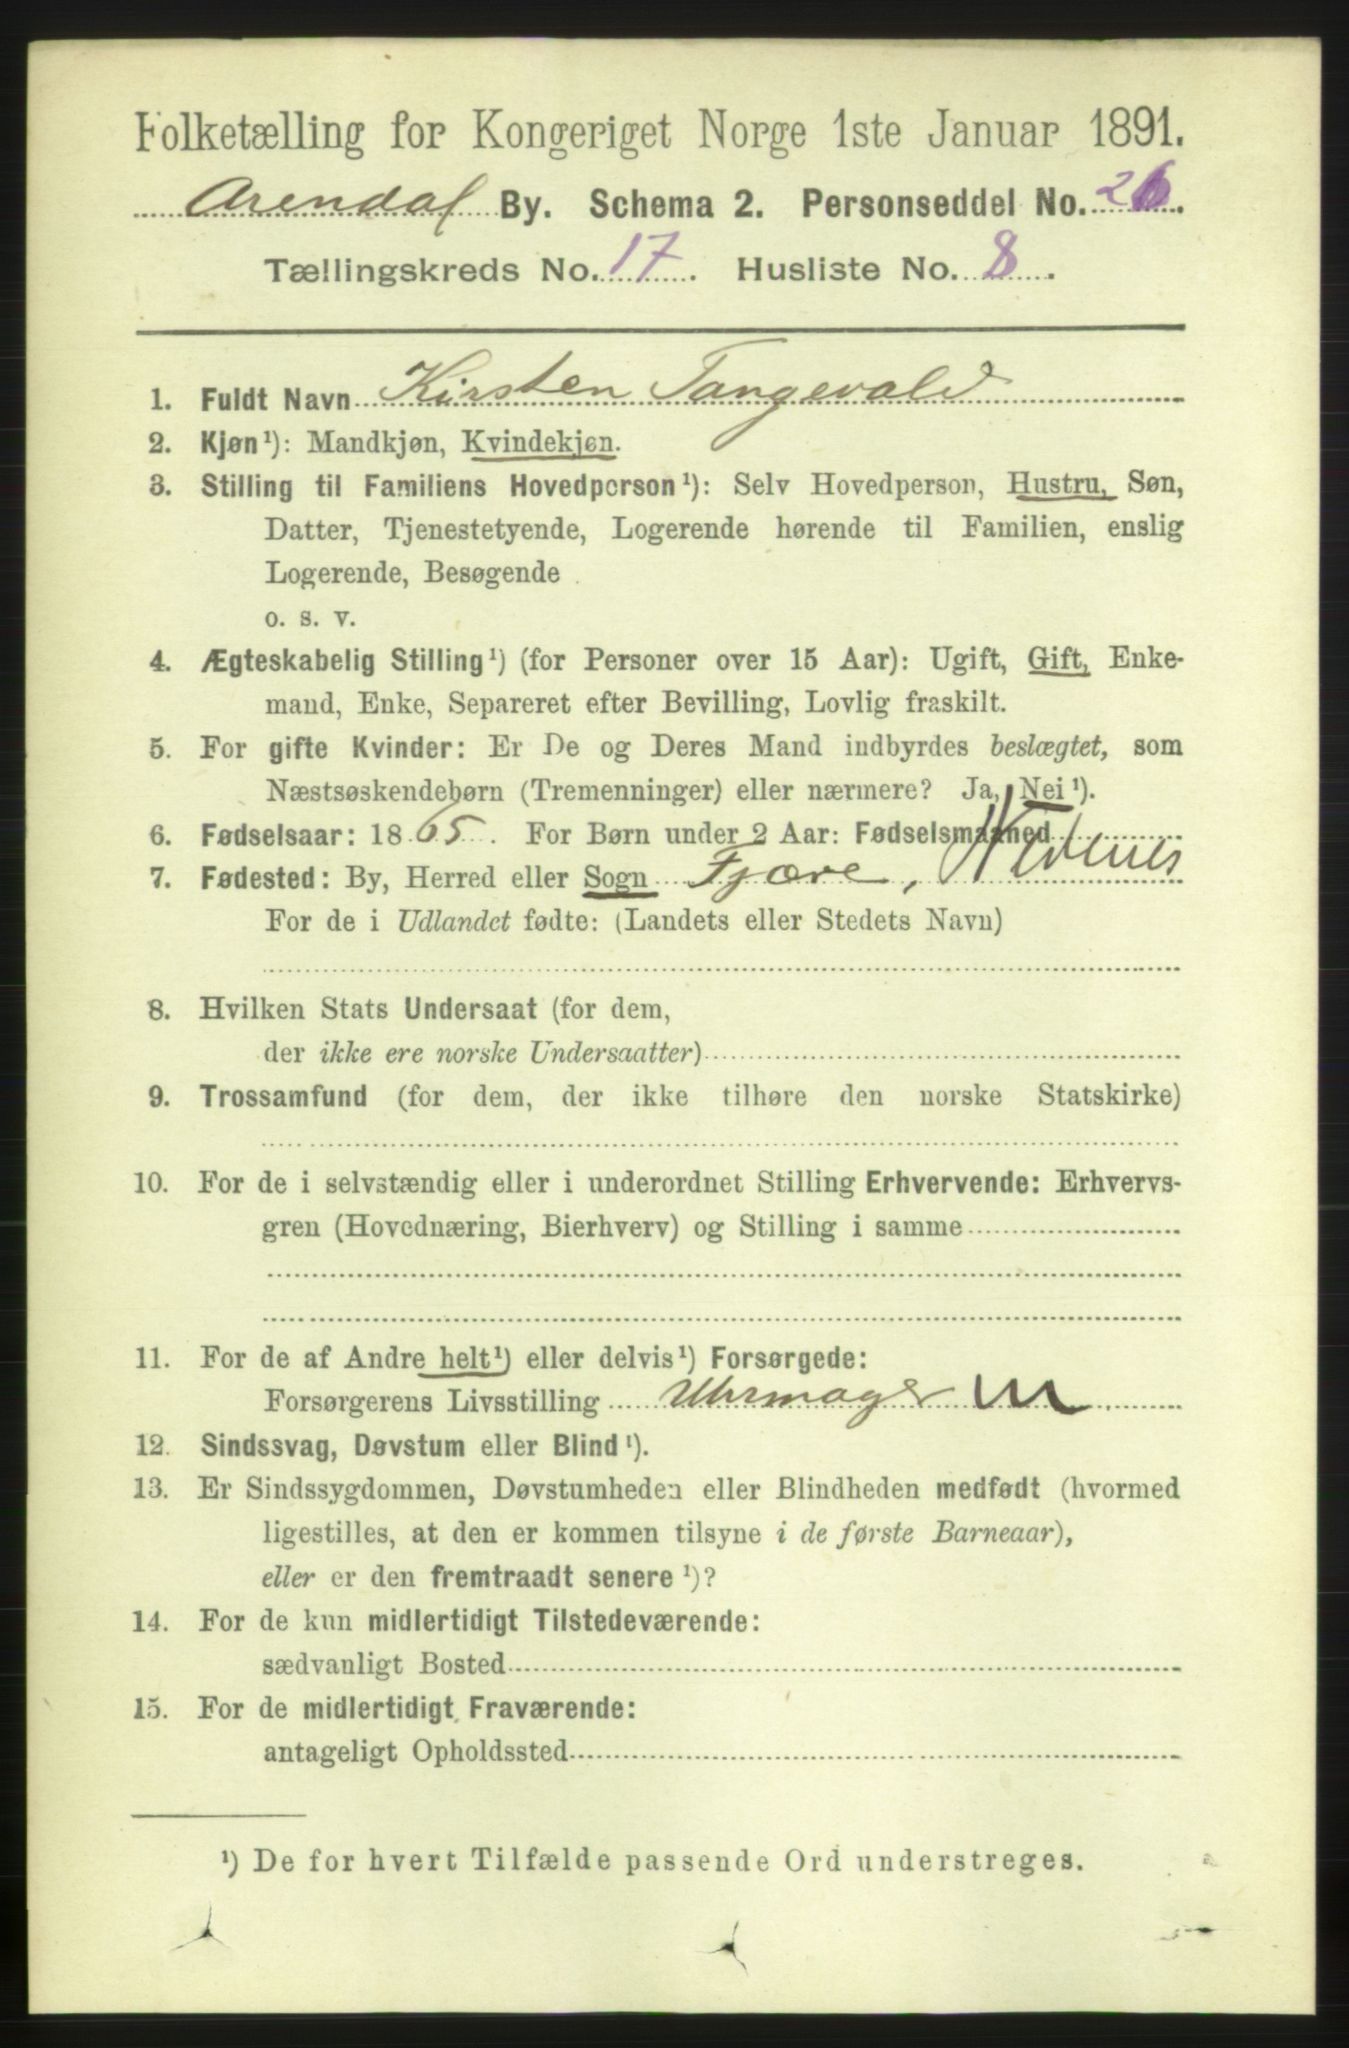 Folketælling for Kongeriget Norge 1ste Januar 1891.
Arendal By. Schema 2. Personseddel No. 26.
Tællingskreds No. 17. Husliste No. 8.
1. Fuldt Navn Kirsten Tangevald
2. Kjøn¹): Mandkjøn, Kvindekjøn.
3. Stilling til Familiens Hovedperson¹): Selv Hovedperson, Hustru, Søn,
Datter, Tjenestetyende, Logerende hørende til Familien, enslig
Logerende, Besøgende
o. s. v.
4. Ægteskabelig Stilling¹) (for Personer over 15 Aar): Ugift, Gift, Enke-
mand, Enke, Separeret efter Bevilling, Lovlig fraskilt.
5. For gifte Kvinder: Er De og Deres Mand indbyrdes beslægtet, som
Næstsøskendebørn (Tremenninger) eller nærmere? Ja, Nei¹).
6. Fødselsaar: 1865. For Børn under 2 Aar: Fødselsmaaned
7. Fødested: By, Herred eller Sogn Fjære, Nedenes
For de i Udlandet fødte: (Landets eller Stedets Navn)
8. Hvilken Stats Undersaat (for dem,
der ikke ere norske Undersaatter)
9. Trossamfund (for dem, der ikke tilhøre den norske Statskirke)
10. For de i selvstændig eller i underordnet Stilling Erhvervende: Erhvervs-
gren (Hovednæring, Bierhverv) og Stilling i samme
11. For de af Andre helt¹) eller delvis¹) Forsørgede:
Forsørgerens Livsstilling Uhrmager M
12. Sindssvag, Døvstum eller Blind¹).
13. Er Sindssygdommen, Døvstumheden eller Blindheden medfødt (hvormed
ligestilles, at den er kommen tilsyne i de første Barneaar),
eller er den fremtraadt senere¹)?
14. For de kun midlertidigt Tilstedeværende:
sædvanligt Bosted
15. For de midlertidigt Fraværende:
antageligt Opholdssted
¹) De for hvert Tilfælde passende Ord understreges.